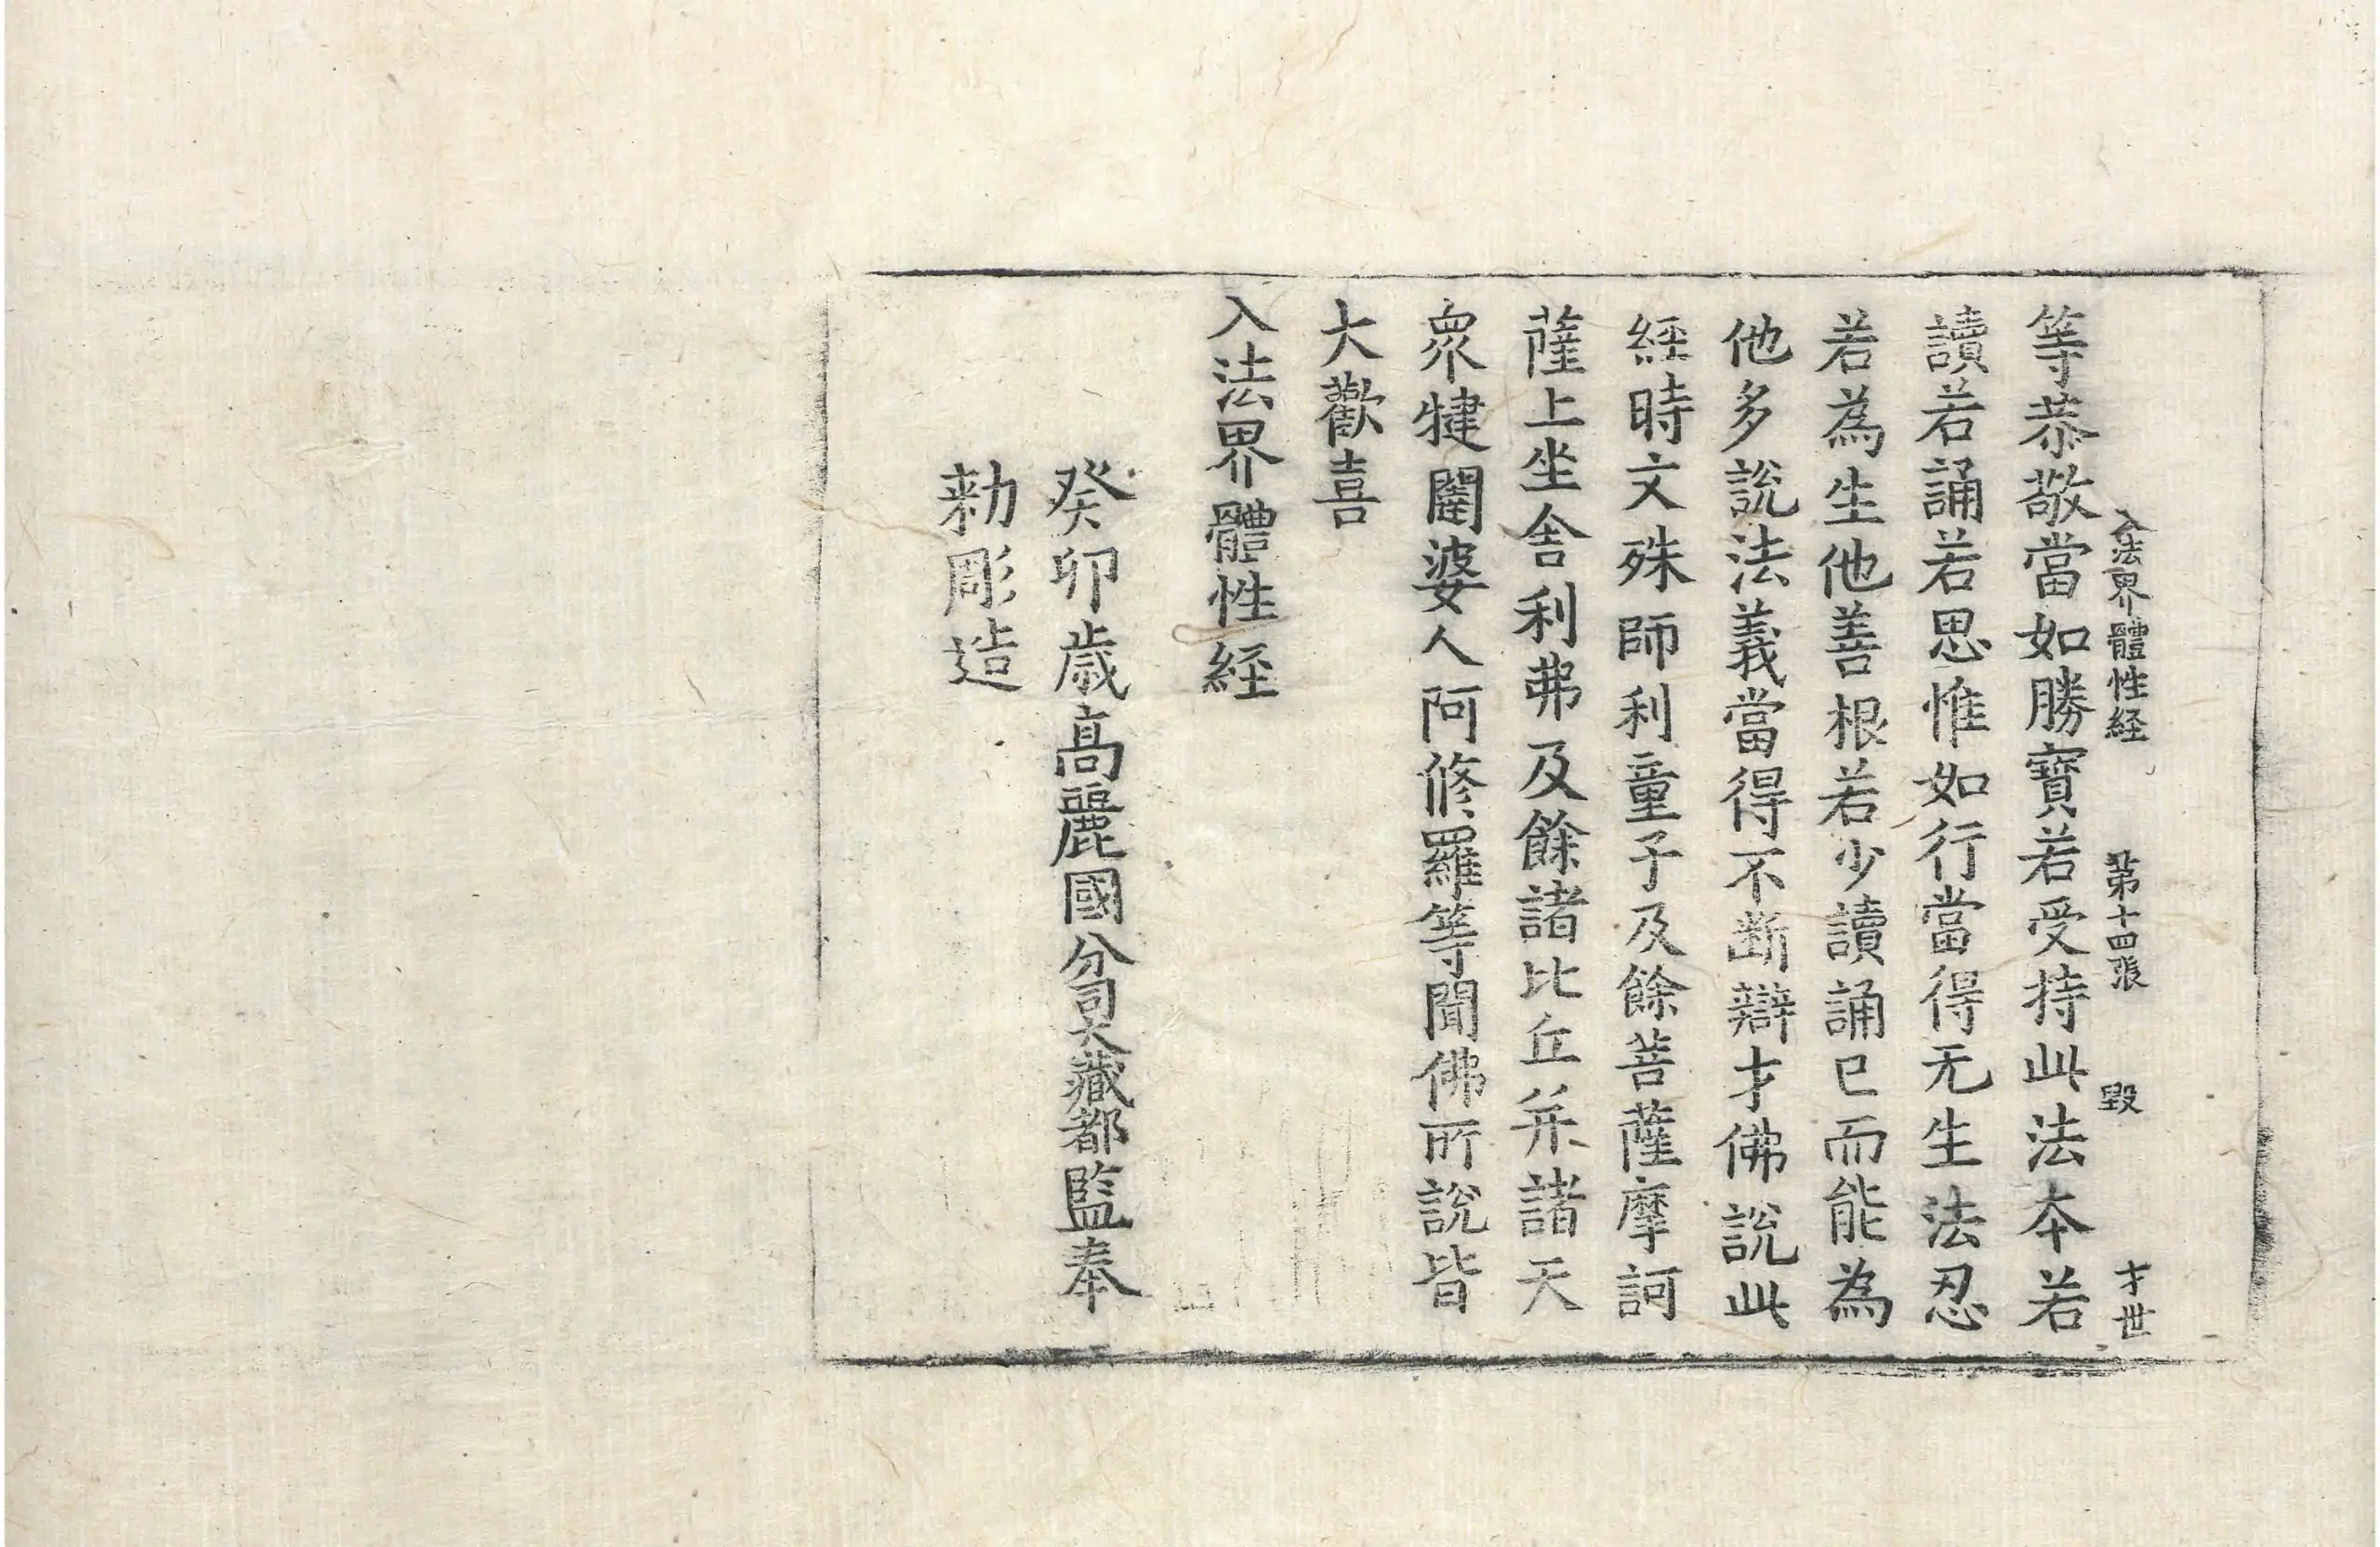 入法界體性経 第十四張 毀 才世
等恭敬當如勝寶若受持此法本若
讀若誦若思惟如行當得无生法忍
若為生他善根若少讀誦已而能為
他多說法義當得不断辯才佛說此
経時文殊師利童子及餘菩薩摩訶
薩上坐舍利弗及餘諸比丘并諸天
眾犍闥婆人阿修羅等聞佛所說皆
大歡喜
入法界體性経
癸卯歲高麗國分司大藏都監奉
勅彫造